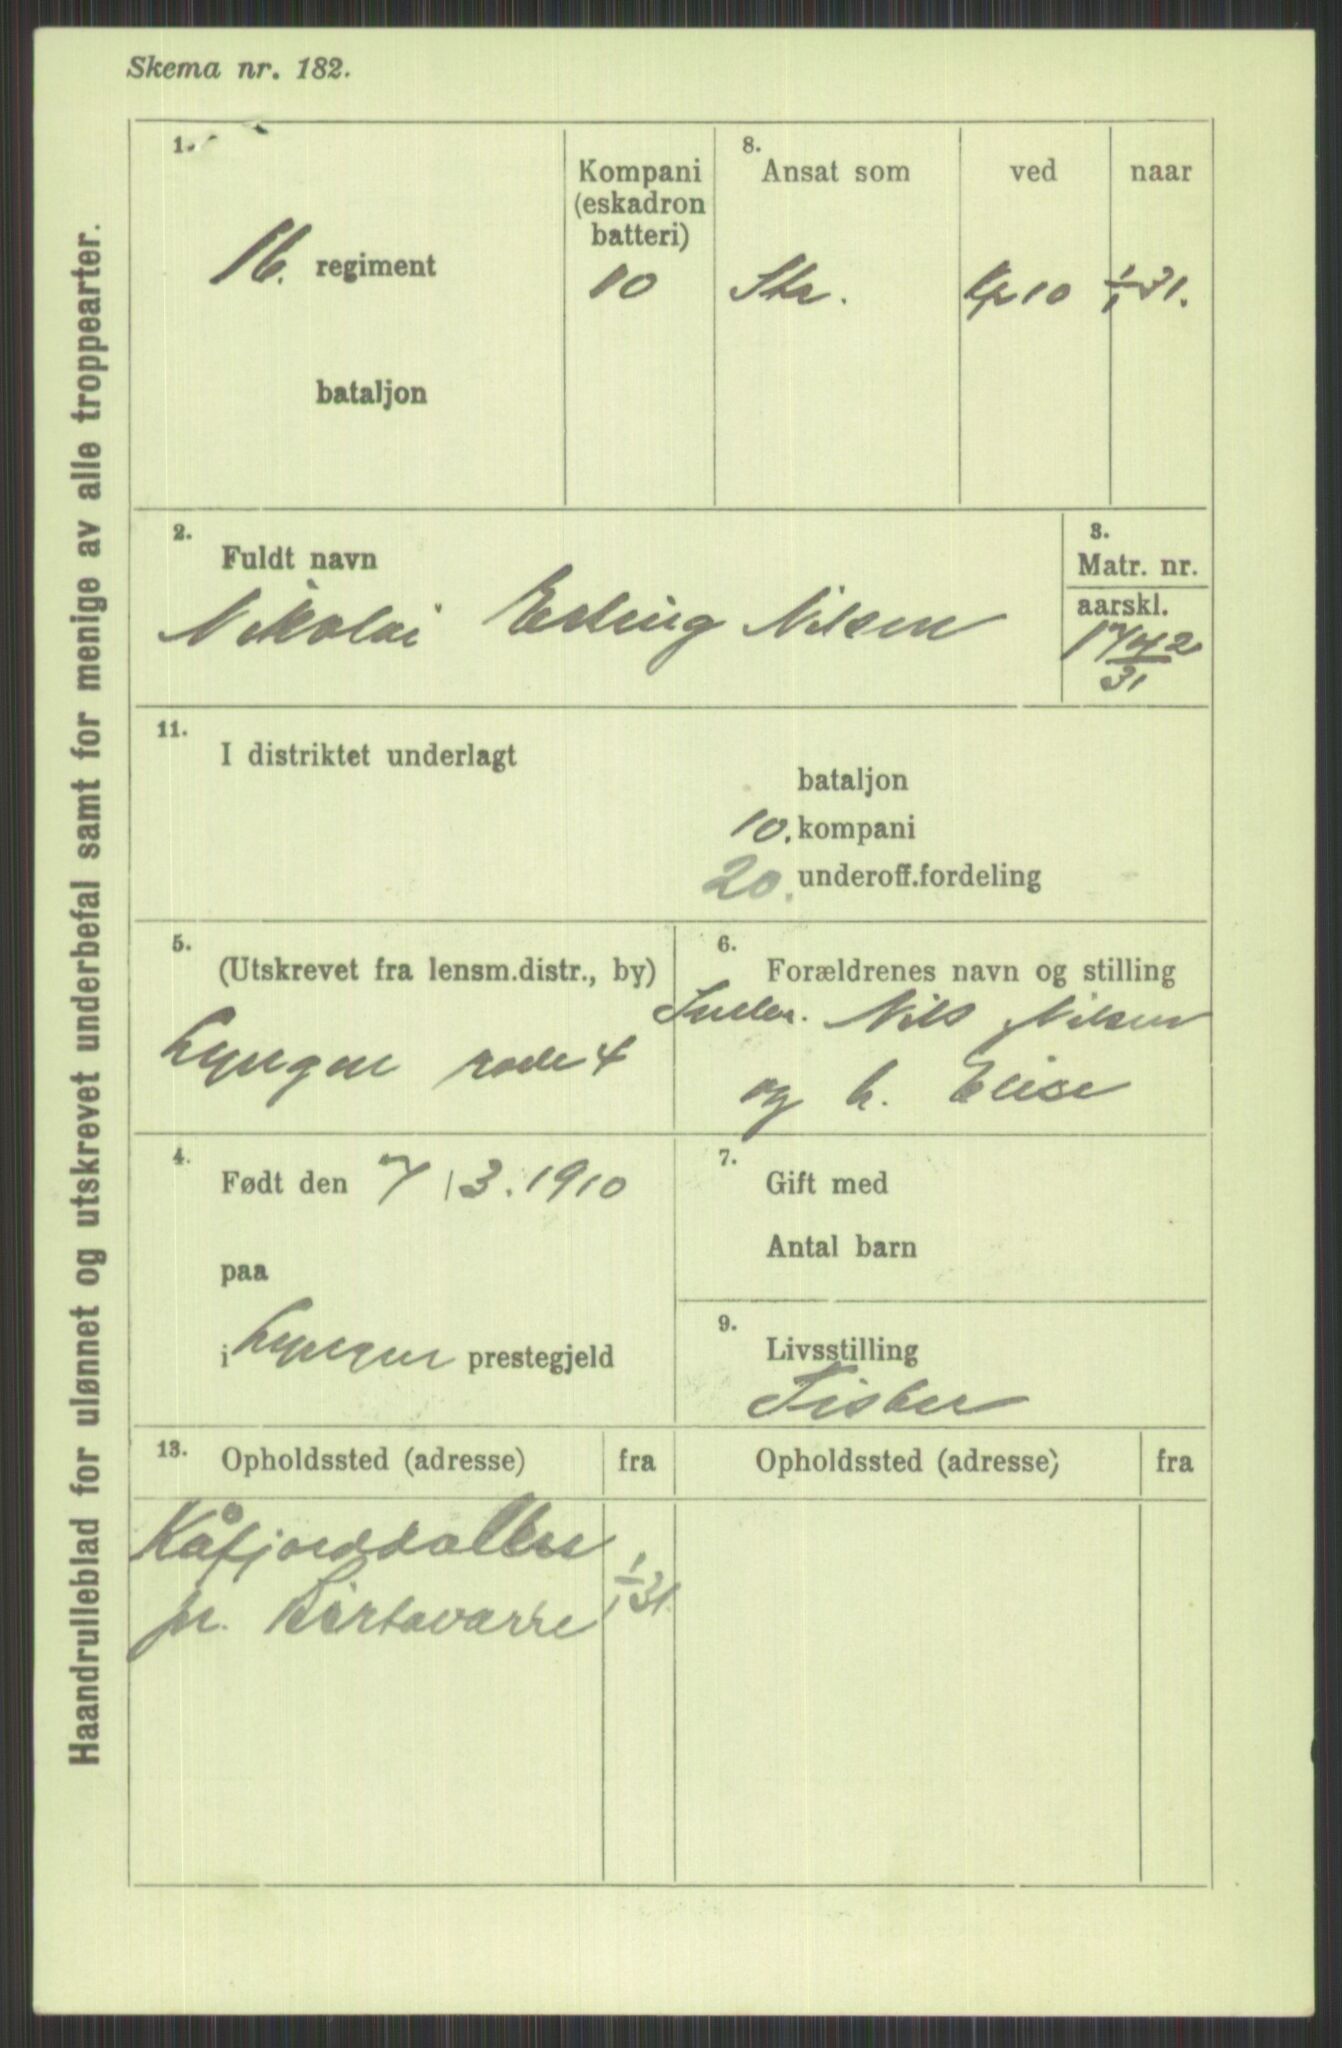 Skema nr. 182.
Haandrulleblad for ulønnet og utskrevet underbefal samt for menige av alle troppearter.
1.
16. regiment
bataljon
Kompani
(eskadron
batteri)
10
8.
Ansat som
Str.
ved
Kp 10
naar
1/1 31.
2.
Fuldt navn
Nikolai Erling Nilsen
3.
Matr. nr.
aarskl.
1742
31
11.
I distriktet underlagt
bataljon
10. kompani
20. underoff.fordeling
5.
(Utskrevet fra lensm.distr., by)
Lyngen rode 4
6.
Forældrenes navn og stilling
Nils Nilsen
og h. Elise
4.
Født den 7/3.1910
paa
i Lyngen prestegjeld
7.
Gift med
Antal barn
9.
Livsstilling
Fisker
13.
Opholdssted (adresse)
fra
Opholdssted (adresse)
fra
Kåfjorddalen
pr. Birtavarre
1/1 31.